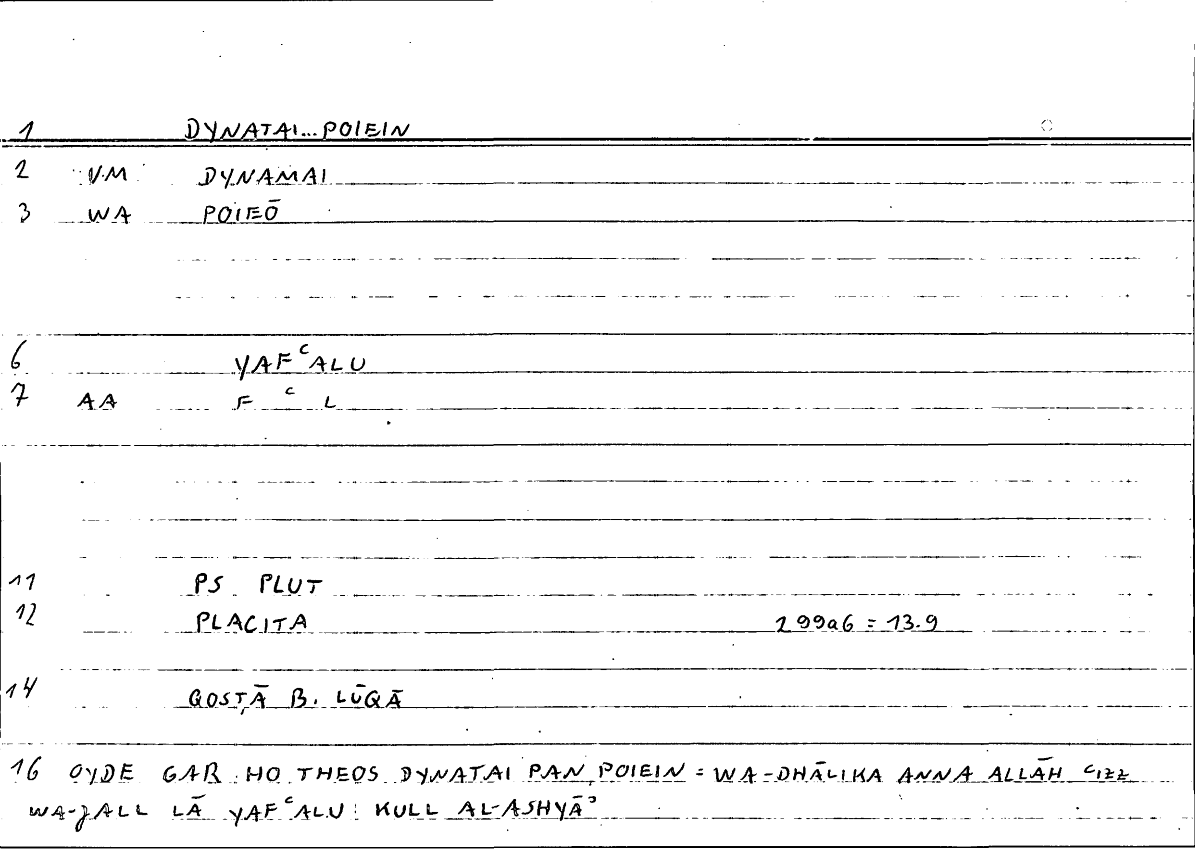 1 DYNATAI...POIEIN
2 VM DYNAMAI
3 WA POIEŌ
6 YAFᶜALU
7 AA F ᶜ L
11 PS PLUT
12 PLACITA 299a6 = 13.9
14 QOSṬĀ B. LŪQĀ
16 OYDE GAR HO THEOS DYNATAI PAN POIEIN = WA-DHĀLIKA ANNA ALLĀH ᶜIZZ
WA-JALL LĀ YAFᶜALU KULL AL-ASHYĀʾ